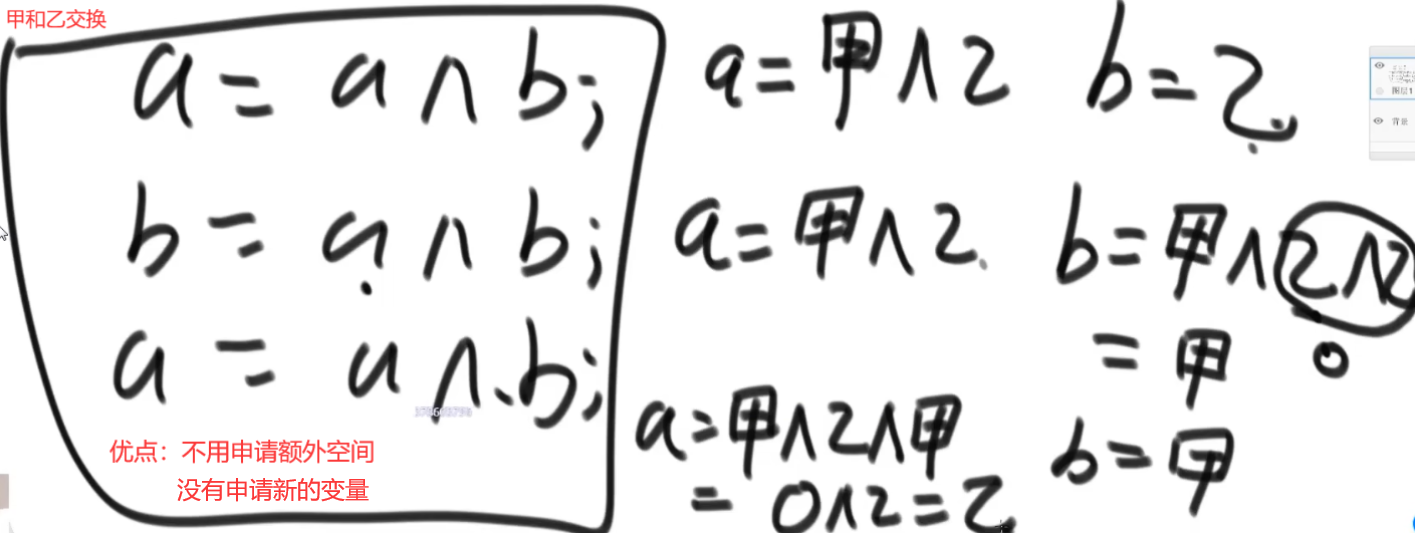 甲和乙交换
a = a ^ b;
b = a ^ b;
a = a ^ b;
优点：不用申请额外空间
没有申请新的变量
a = 甲 ^ 乙
b = 乙
a = 甲 ^ 乙
b = 甲 ^ 乙 ^ 乙
0
= 甲
b = 甲
a = 甲 ^ 乙 ^ 甲
= 0 ^ 乙 = 乙
图层1
背景